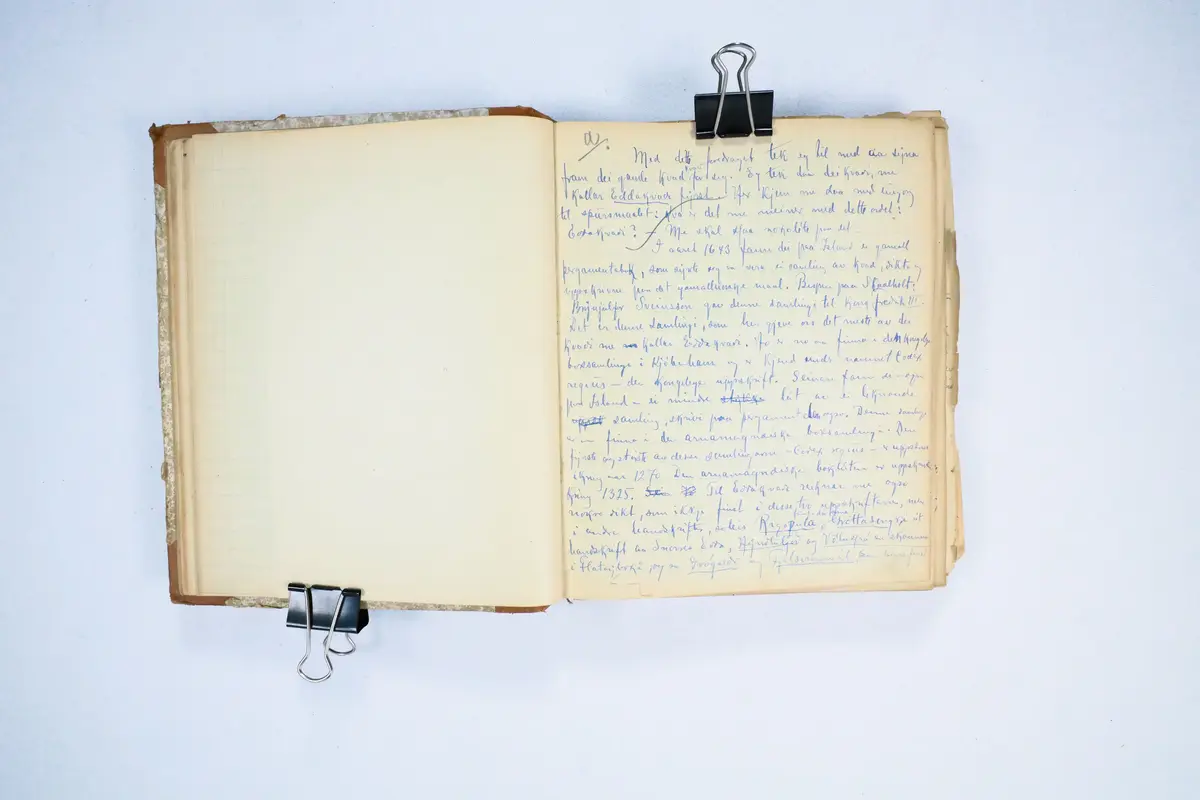 Med dette fordraget tek eg til med aa syna
fram dei gamle kvad for seg. Eg tek daa dei kvadi, me
kallar Eddakvadi fyrst. Her kjem me daa med eingong
til spursmaalet: Kva er det me meiner med dette ordet:
Eddakvadi? — Me skal sjaa noko lite paa det.
I aaret 1643 fann dei paa Island ei gamall
pergamentsbok, som synte seg aa vera ei samling av kvad, dikta og
uppskrivne paa det gamalnorske maal. Bispen paa Skaalholt:
Brynjulfr Sveinsson gav denne samlingi til kong Fredrik III.
Det er denne samlingi, som her gjeve oss det meste av dei
kvadi me kallar Eddakvadi. Ho er no aa finna i den kongelege
boksamlinga i Kjöbenhavn og er kjend under namnet Codex
regius — den kongelege uppskrift. Seinare fann dei ogso
paa Island — ei mindre leit av ei liknande
samling, skrivi paa pergament den ogso. Denne samlingi
er aa finna i den arnamagnæiske boksamlingi. Den
fyrste og største av desse samlingarne — Codex regius — er uppskrivi
ikring aar 1270. Den arnamagnæiske bokleten er uppskrivi
kring 1325. Til Eddakvadi reknar me ogso
nokre dikt, som ikkje finst i desse uppskrifterne, men
i andre handskrifter, soleis Rigspula, Grottasongr i eit
handskrift av Snorres Edda, Hyndluljod og
i Flateyboki, og so Grógaldr og Fjölsvinnsmál, som